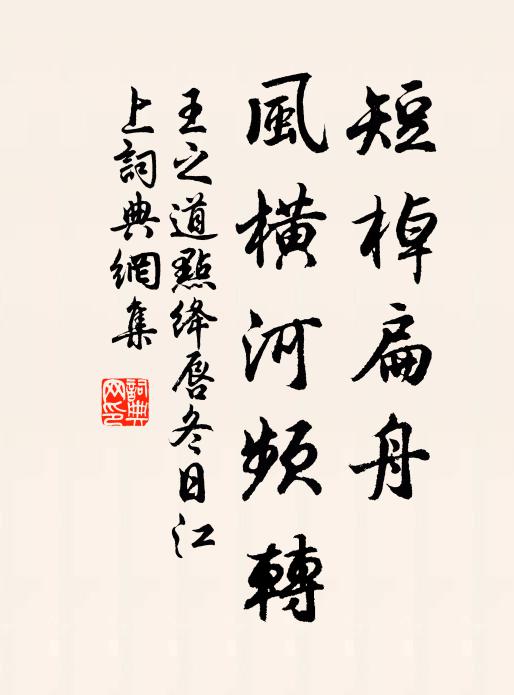 短棹扁舟
風橫河頻轉
王之道點絳唇冬日江
上詞典網集
詞典
网印